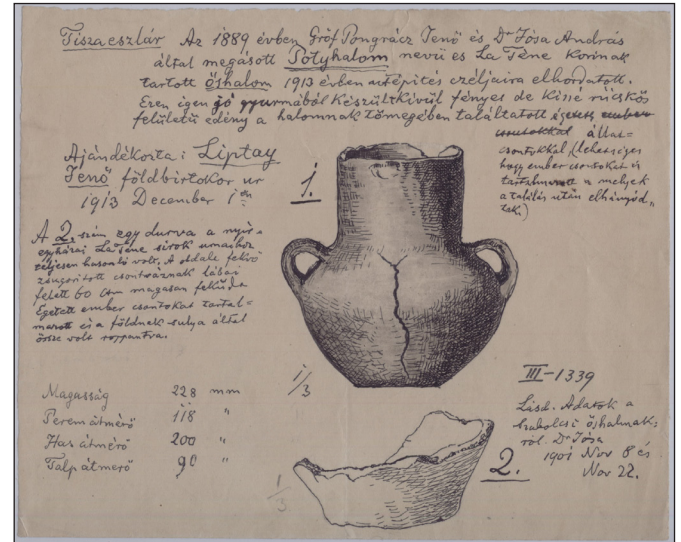 Tiszaeszlár Az 1889 évben Gróf Pongrácz Jenő és Dr Jósa András
által megásott Pótyhalom nevü es La Téne Korinak
tartott őshalom 1913 évben utépités czéljaira elhordatott.
Ezen igen jó gyurmából készült kivül fényes de kissé rücskös
felületű edény a halomnak tömegében találtatott égetett ember
csontokkal állat=
csontokkal (lehetséges
hogy ember csontokat is
tartalmazott a melyek
a találás után elhányód„
tak)
Ajándékozta: Liptay
Jenő földbirtokos ur
1913 December 1én
1.
A 2. szám egy durva a nyir=
egyházai LaTéne sirok urnáihoz
teljesen hasonló volt. A oldalt fekvő
zsugorított csontváznak lábai
felett 60 cm magasan feküdt.
Égetett ember csontokat tartal=
mazott és a földnek sulya által
össze volt roppantva.
1/3
Magasság 228 mm
Perem átmérő 118 "
Has átmérő 200 "
Talp átmérő 90 "
III-1339
Lásd. Adatok a
szabolcsi őshalmak=
ról. Dr Jósa
1901 Nov 8 és
Nov 22.
2.
1/3